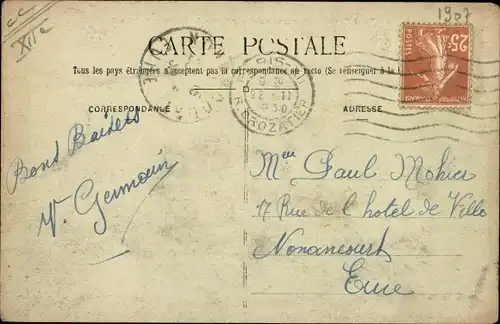 cc
XIIe
1907
CARTE POSTALE
Tous les pays étrangers n'acceptent pas la correspondance au recto (Se renseigner à la
CORRESPONDANCE
ADRESSE
25c
POSTES
PARIS-XII
22-11
1930
R. CROZATIER
Bons Baisers
V. Germain
Paul Mohier
7 Rue de l'hotel de Ville
Nonancourt
Eure